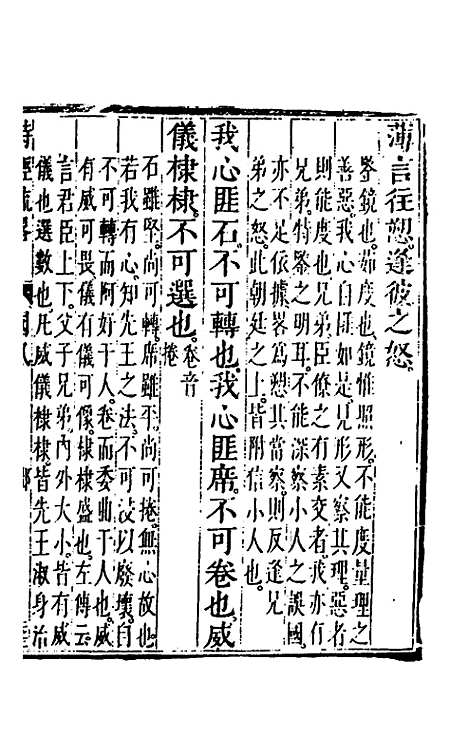 薄言往愬逢彼之怒
鑒鏡也茹度也鏡惟照形不能度量理之
善惡我心自匪如是見形又察其理惡者
則能度也兄弟臣僚之有素交者我亦有
兄弟特鑒之明耳不能深察小人之誤國
亦不足依據畧為愬其當察則反逢兄
弟之怒此朝廷之上皆附信小人也
我心匪石不可轉也我心匪席不可卷也威
儀棣棣不可選也卷音捲
石雖堅尚可轉席雖平尚可捲無心故也
若我有心知先王之法不可沒以廢壞自
不可轉而阿好于人卷而委曲于人也
有威可畏儀有儀可像棣棣盛也左傳云
言君臣上下父子兄弟內外大小皆有威
儀也選數也凡威儀棣棣皆先王淑身治